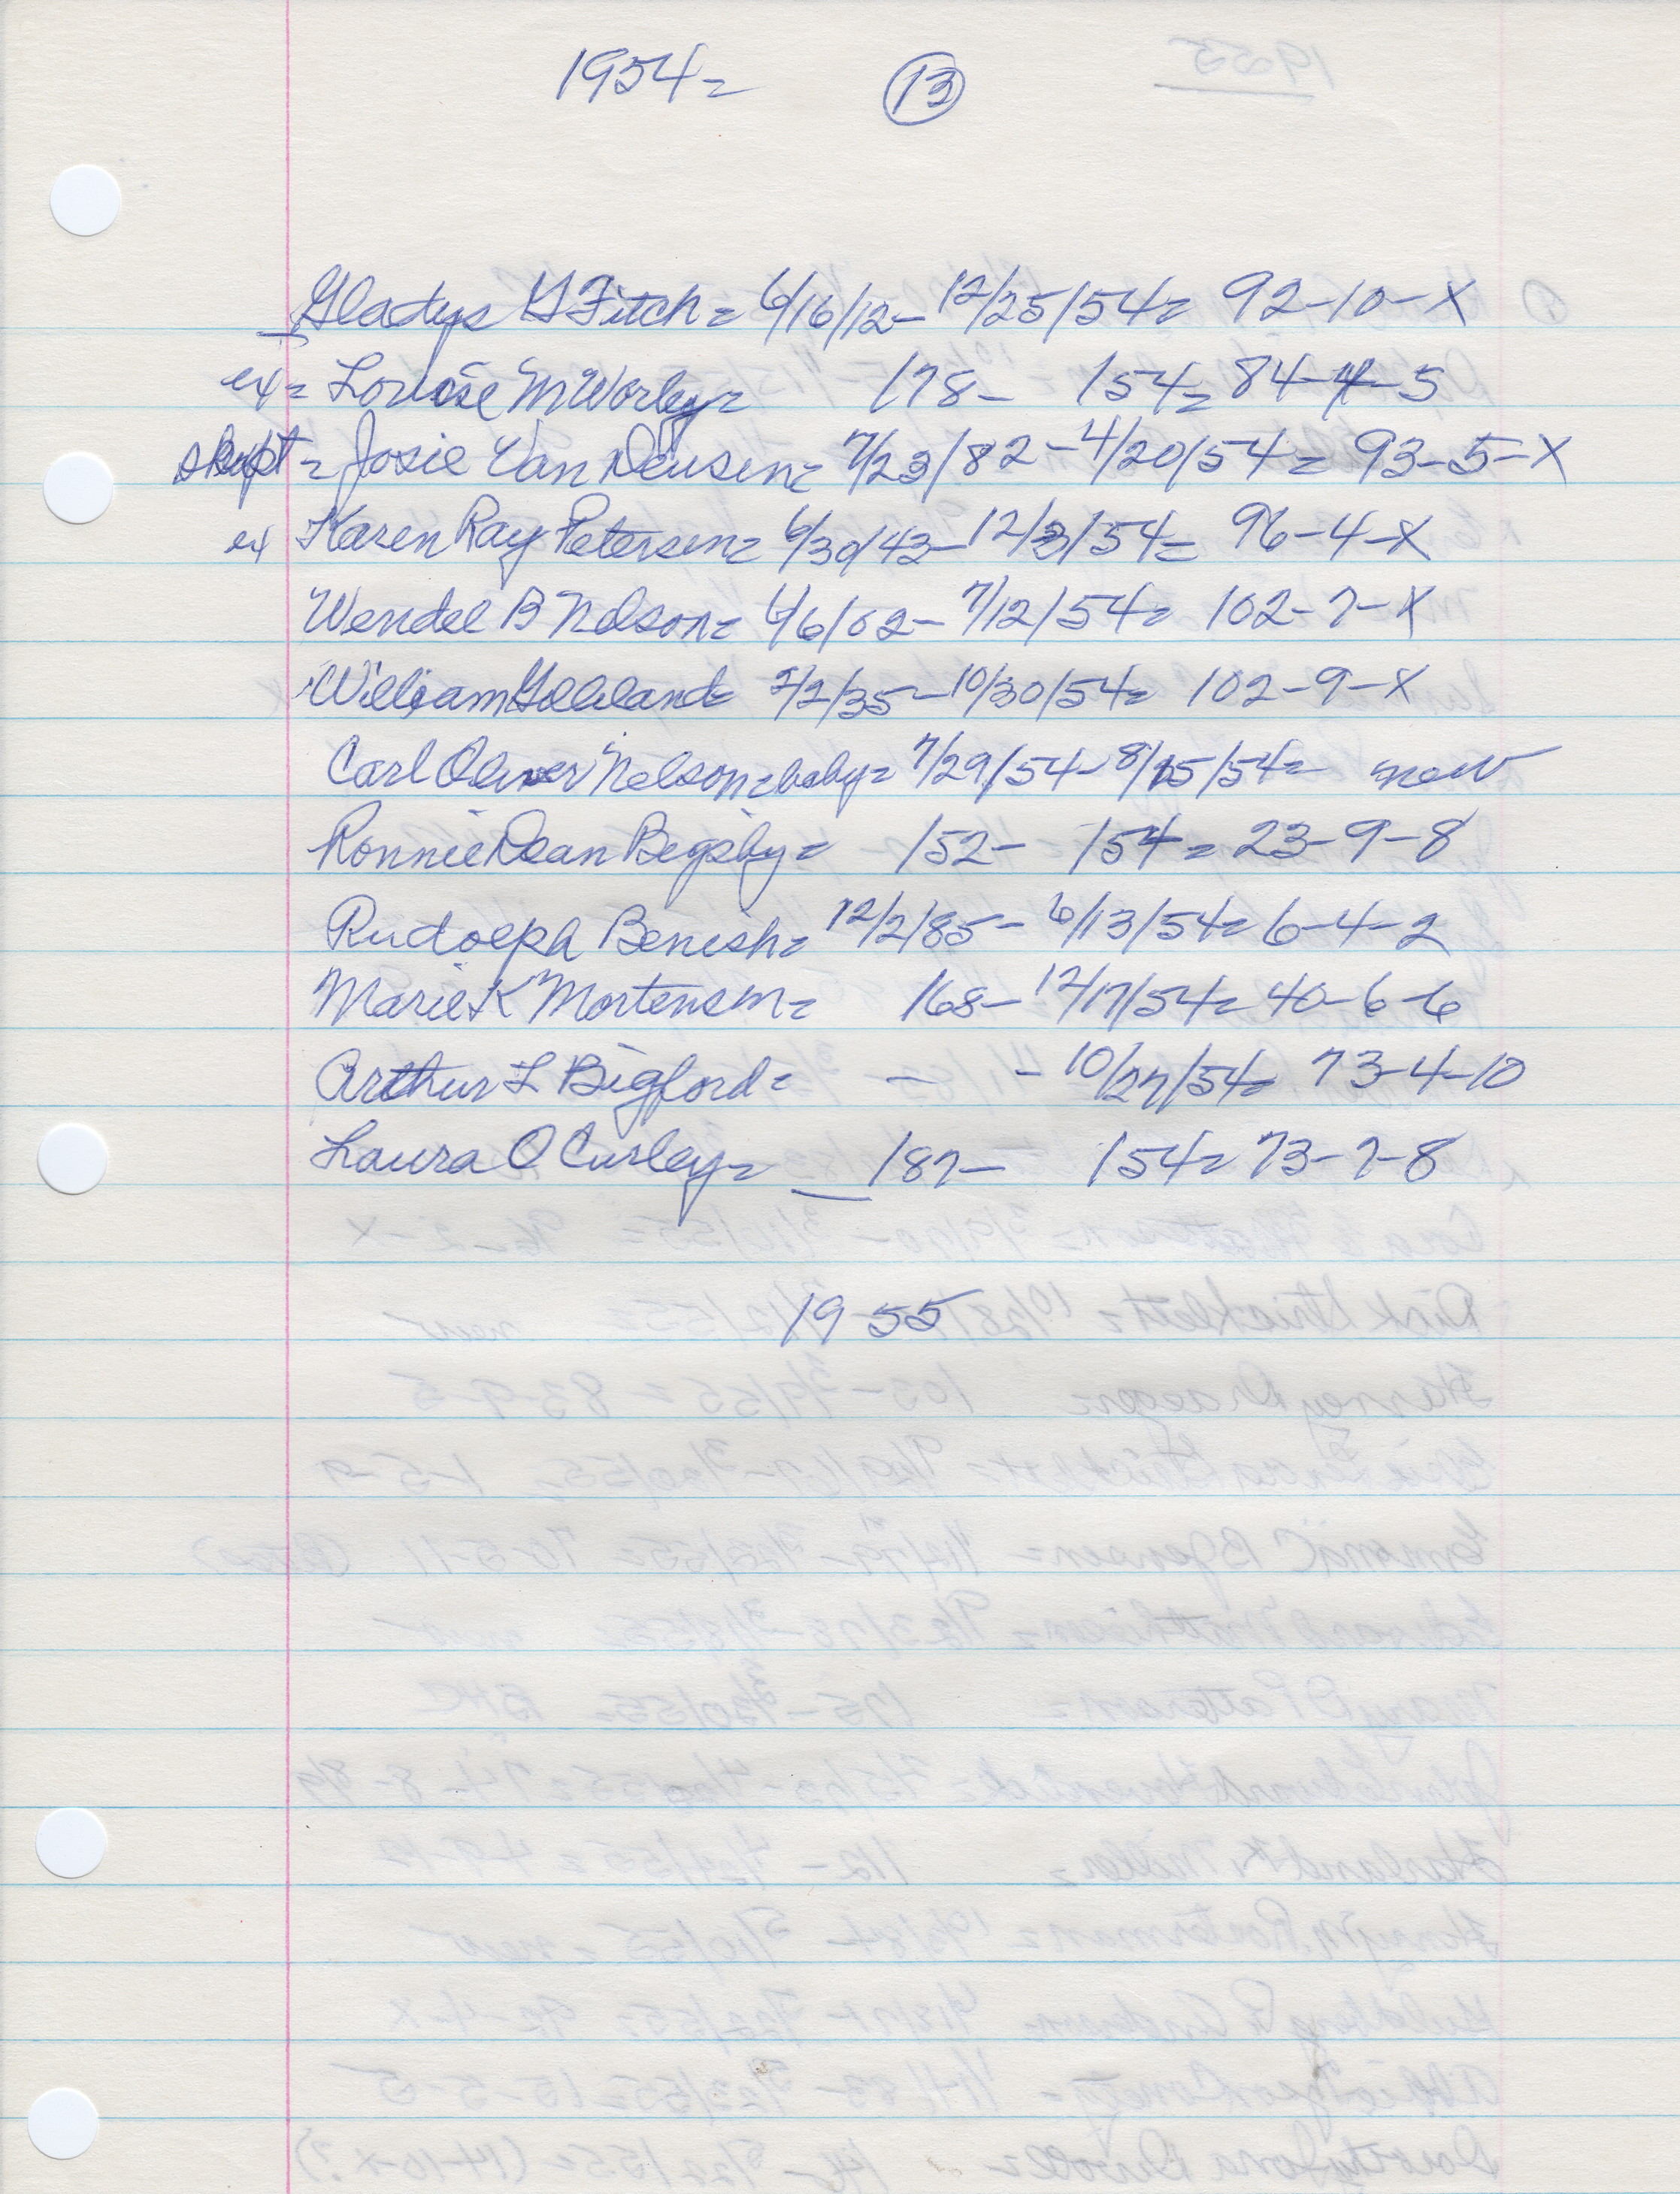 1954= 13
Gladys G Fitch= 6/16/12- 12/25/54= 92-10-X
ex= Louise M Worley= /78- /54= 84-4-5
= Josie Van Deusen= 7/23/82-4/20/54= 93-5-X
ex Karen Ray Petersen= 6/30/43-12/3/54= 96-4-X
Wendel B Nelson= 4/6/02- 7/12/54= 102-7-X
William Gilliland= 2/2/35-10/30/54= 102-9-X
Carl Oliver Nelson=baby= 7/29/54-8/15/54= new
Ronnie Dean Begsby= /52- /54= 23-9-8
Rudolph Benish= 12/2/85- 6/13/54= 6-4-2
Marie K Mortensen= /68- 12/17/54= 40-6-6
Arthur L Bigford= - - 10/27/54= 73-4-10
Laura O Curley= /87- /54= 73-7-8
1955